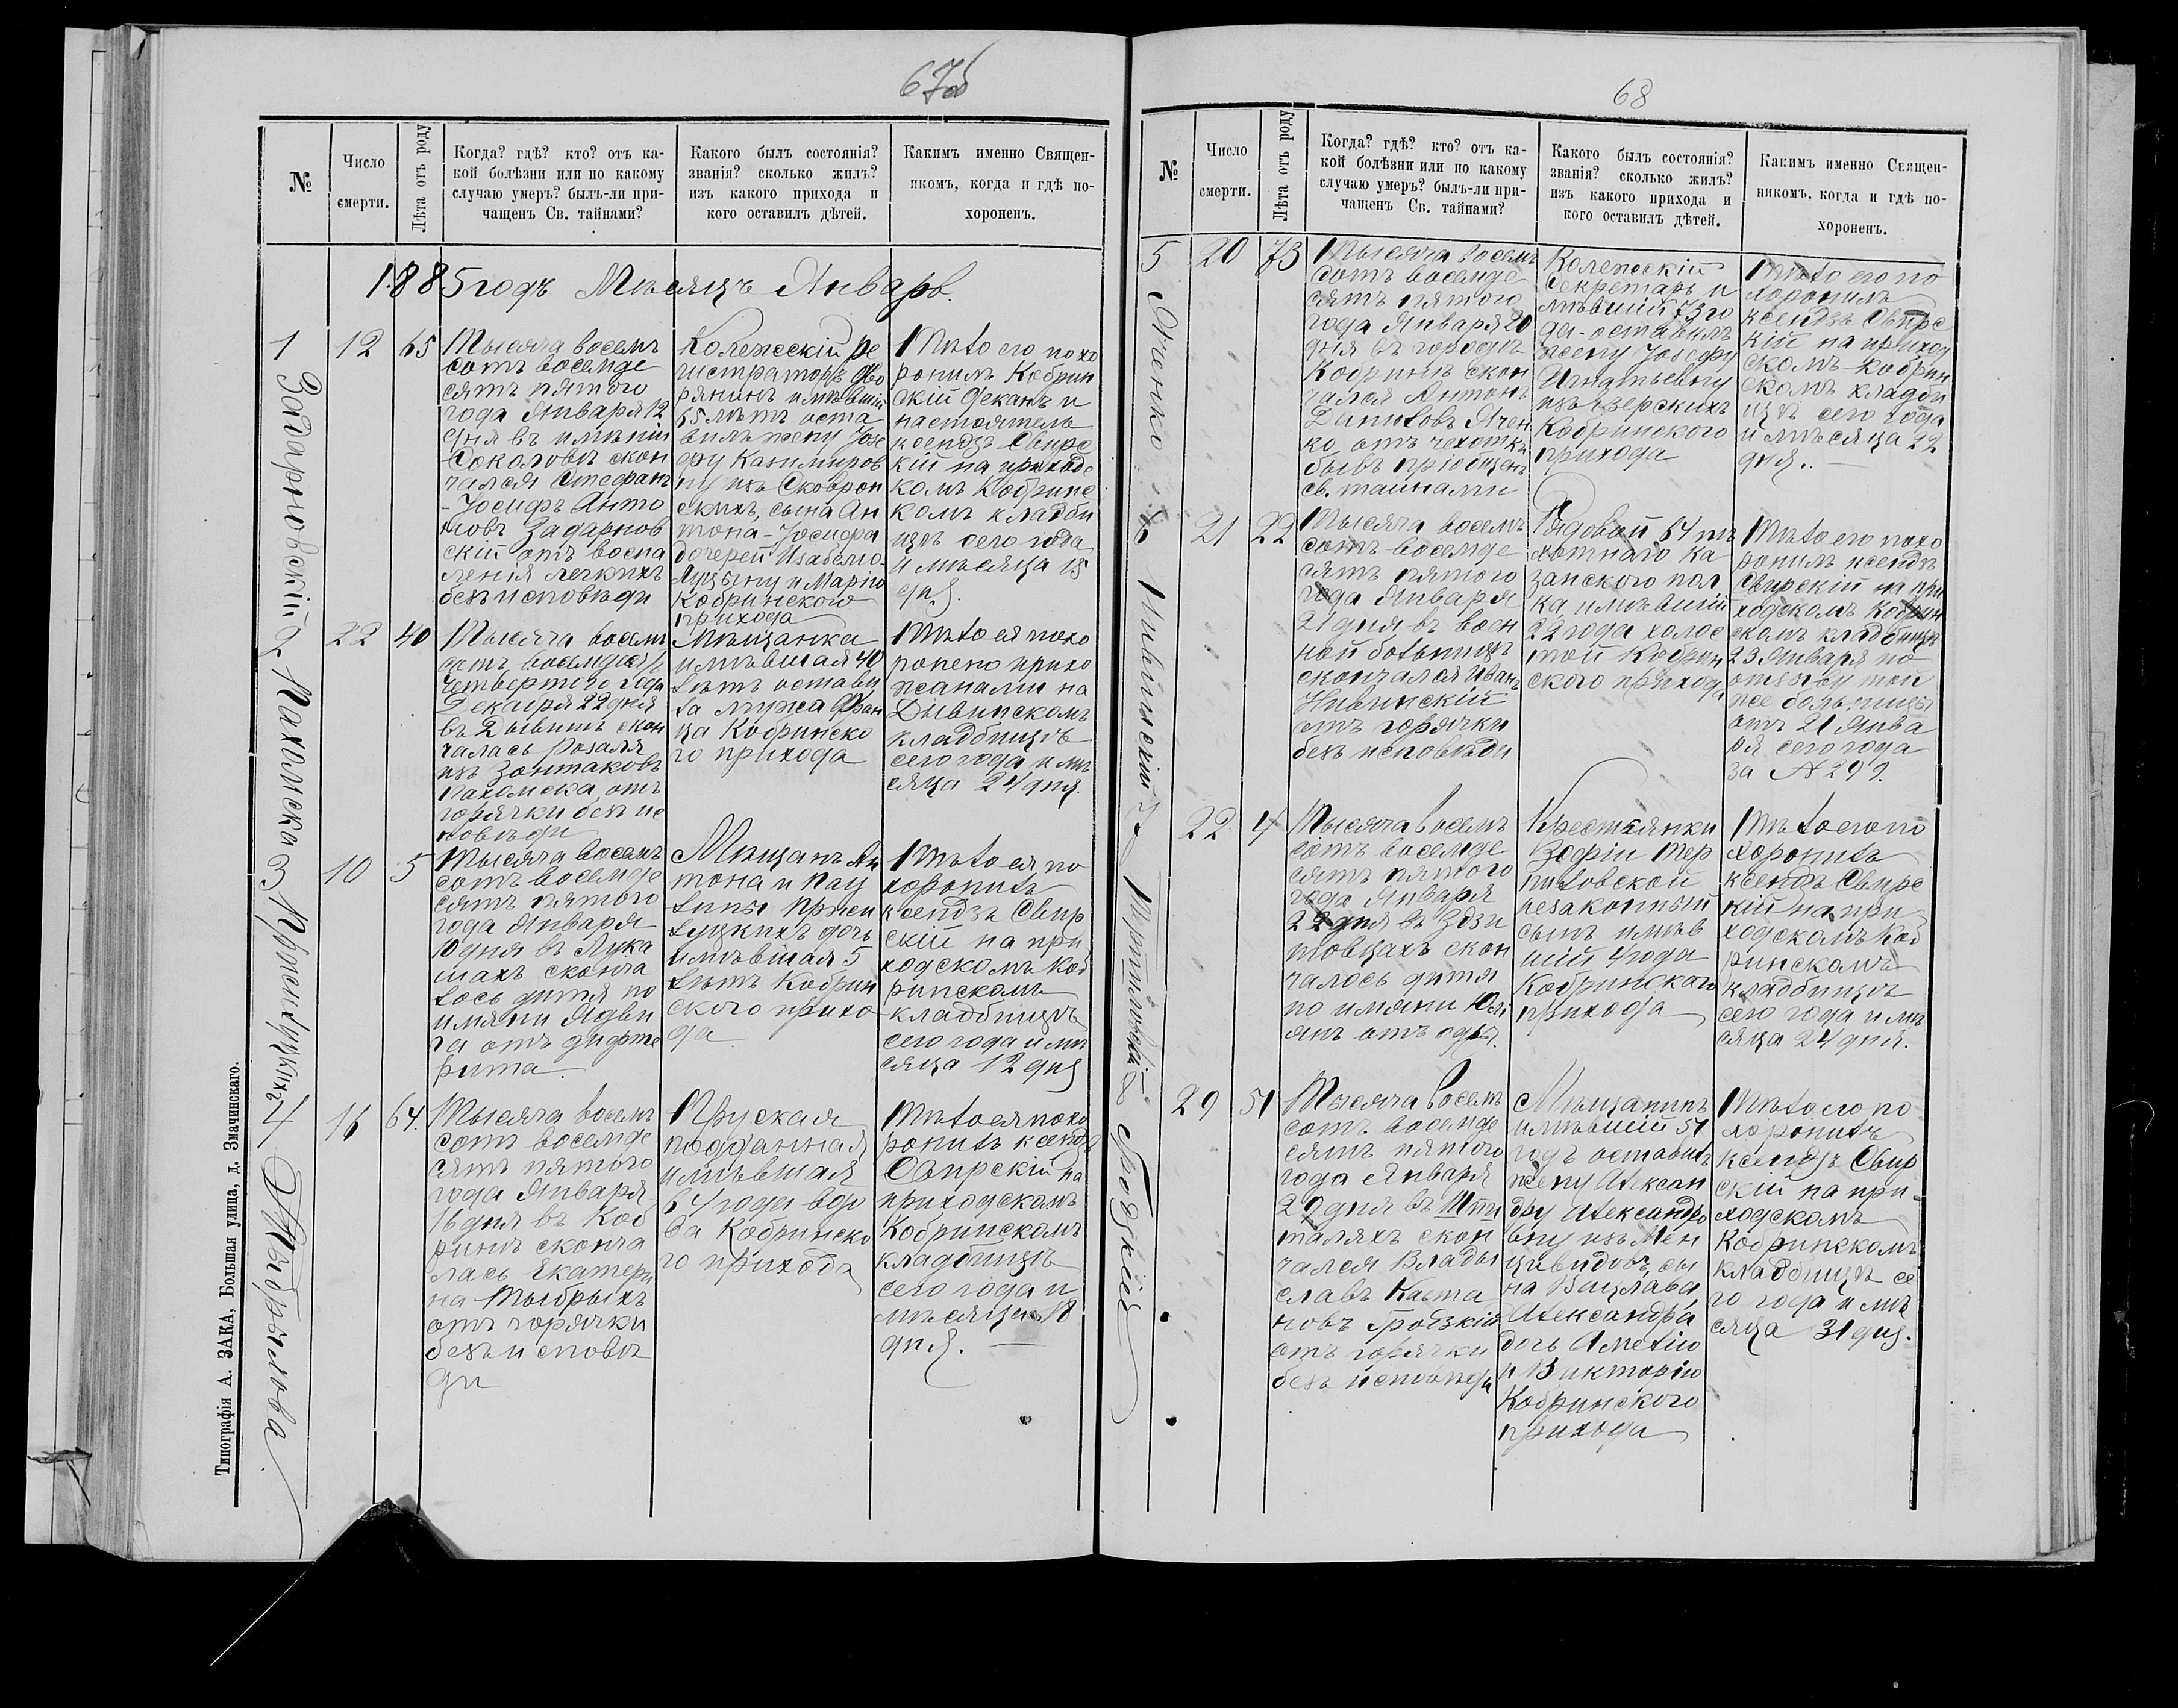 67об
№
Число
смерти.
Лѣта отъ роду
Когда? гдѣ? кто? отъ ка-
кой болѣзни или по какому
случаю умеръ? былъ-ли при-
чащенъ Св. тайнами?
Какого былъ состоянія?
званія? сколько жилъ?
изъ какого прихода и
кого оставилъ дѣтей.
Какимъ именно Священ-
никомъ, когда и гдѣ по-
хороненъ.
1885 годъ Мѣсяцъ Январь.
1
Задарновскій
12
65
Тысяча восемь
сотъ восемьде
сятъ пятого
года Января 12
дня въ имѣніи
Соколовѣ скон
чался Стефанъ
-Іосифъ Анто
новъ Задарнов
скій отъ воспа
ленія легкихъ
безъ исповѣди
Колежскій ре
гистраторъ дво
рянинъ имѣвшій
65 лѣтъ оста
вилъ жену Іозе
фу Казимиров
ну изъ Сковрон
скихъ, сына Ан
тона-Іосифа
дочерей Изабелю-
Луцыну и Марію
Кобринского
прихода
Тѣло его похо
ронилъ Кобрин
скій деканъ и
настоятель
ксендзъ Свирс
кій на приходс
комъ Кобринс
комъ кладби
щѣ сего года
и мѣсяца 15
дня.
2
Пахомска
22
40
Тысяча восемь
сотъ восемдесятъ
четвертого года
Декабря 22 дня
въ Дывинѣ скон
чалась Розалія
изъ Зонтаковъ
Пахомска, отъ
горячки безъ ис
повѣди
Мѣщанка
имѣвшая 40
лѣтъ остави
ла мужа Фран
ца Кобринско
го прихода
Тѣло ея похо
ронено прихо
жанами на
Дывинскомъ
кладбищѣ
сего года и мѣ
сяца 24 дня.
3
Пржилуцкихъ
10
5
Тысяча восемь
сотъ восемде
сятъ пятого
года Января
10 дня въ Лука
шахъ сконча
лось дитя по
имяни Ядви
га отъ дифте
рита
Мѣщанъ Ан
тона и Пау
лины Пржи
луцкихъ дочь
имѣвшая 5
лѣтъ Кобрин
ского прихо
да
Тѣло ея по
хоронилъ
ксендзъ Свир
скій на при
ходскомъ Коб
ринскомъ
кладбищѣ
сего года и мѣ
сяца 12 дня
4
16
64.
Тысяча восемь
сотъ восемде
сятъ пятого
года Января
16 дня въ Коб
ринѣ сконча
лась Екатери
на Тыбрыхъ
отъ горячки
безъ исповѣ
ди
Пруская
подданная
имѣвшая
64 года вдо
ва Кобринско
го прихода
Тѣло ея похо
ронилъ ксендзъ
Свирскій на
приходскомъ
Кобринскомъ
кладбищѣ
сего года и
мѣсяца 18
дня.
Типографія А. ЗАКА, Большая улица, д. Значинскаго.
68
№
Число
смерти.
Лѣта отъ роду
Когда? гдѣ? кто? отъ ка-
кой болѣзни или по какому
случаю умеръ? былъ-ли при-
чащенъ Св. тайнами?
Какого былъ состоянія?
званія? сколько жилъ?
изъ какого прихода и
кого оставилъ дѣтей.
Какимъ именно Священ-
никомъ, когда и гдѣ по-
хороненъ.
5
Яченко
20
73
Тысяча восемь
сотъ восемде
сятъ пятого
года Января 20
дня въ городѣ
Кобринѣ скон
чался Антонъ
Даниловъ Ячен
ко отъ чехотки
бывъ пріобщенъ
св. тайнами
Колежскій
секретарь и
мѣвшій 73 го
да-оставилъ
жену Іозефу
Игнатьевну
Кобринского
прихода
Тѣло его по
хоронилъ
ксендзъ Свирс
кій на приход
скомъ-Кобрин
скомъ кладби
щѣ сего года
и мѣсяца 22
дня.
6
Нивинскій
21
22
Тысяча восемь
сотъ восемде
сятъ пятого
года Января
21 дня въ воен
ной больницѣ
скончался Иванъ
Нивинскій
отъ горячки
безъ исповѣди
Рядовой 64 пѣ
хотнаго Ка
занского пол
ка имѣвшій
22 года холос
той Кобрин
ского прихода
Тѣло его похо
ронилъ ксендзъ
Свирскій на при
ходскомъ Кобрин
скомъ кладбищѣ
23 Января по
отзыву той
же больницы
отъ 21 Янва
ря сего года
за № 299.
7
22
4
Тысяча восемь
сотъ восемде
сятъ пятого
года Января
22 дня въ Здзи
товцахъ скон
чалось дитя
по имяни Юлі
янъ отъ одры.
Крестьянки
Зофіи Тер
пиловской
незаконный
сынъ имѣв
шій 4 года
Кобринского
прихода
Тѣло его по
хоронилъ
ксендзъ Свирс
кій на при
ходскомъ Коб
ринскомъ
кладбищѣ
сего года и мѣ
сяца 24 дня.
8
Гродзкій
29
51
Тысяча восемь
сотъ восемде
сятъ пятого
года Января
29 дня въ Шпи
таляхъ скон
чался Влады
славъ Каэта
новъ Гродзкій
отъ горячки
безъ исповѣди
Мѣщанинъ
имѣвшій 51
годъ оставилъ
жену Алексан
дру Александро
вну изъ Мен
цвидовъ, сы
на Вацлава,
Александра
дочь Амелію
и Викторію
Кобринского
прихода
Тѣло его по
хоронилъ
ксендзъ Свир
скій на при-
ходскомъ
Кобринскомъ
кладбищѣ се
го года и мѣ
сяца 31 дня.